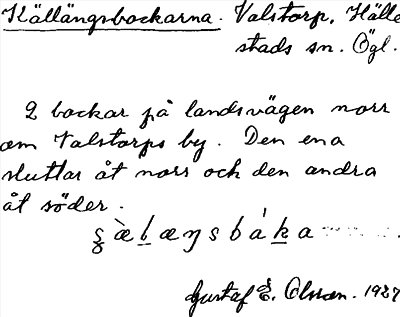 Källängsbackarna. Valstorp, Hälle-
stads sn. Ögl.
2 backar på landsvägen norr
om Valstorps by. Den ena
sluttar åt norr och den andra
åt söder.
Gustaf E. Olsson. 1927